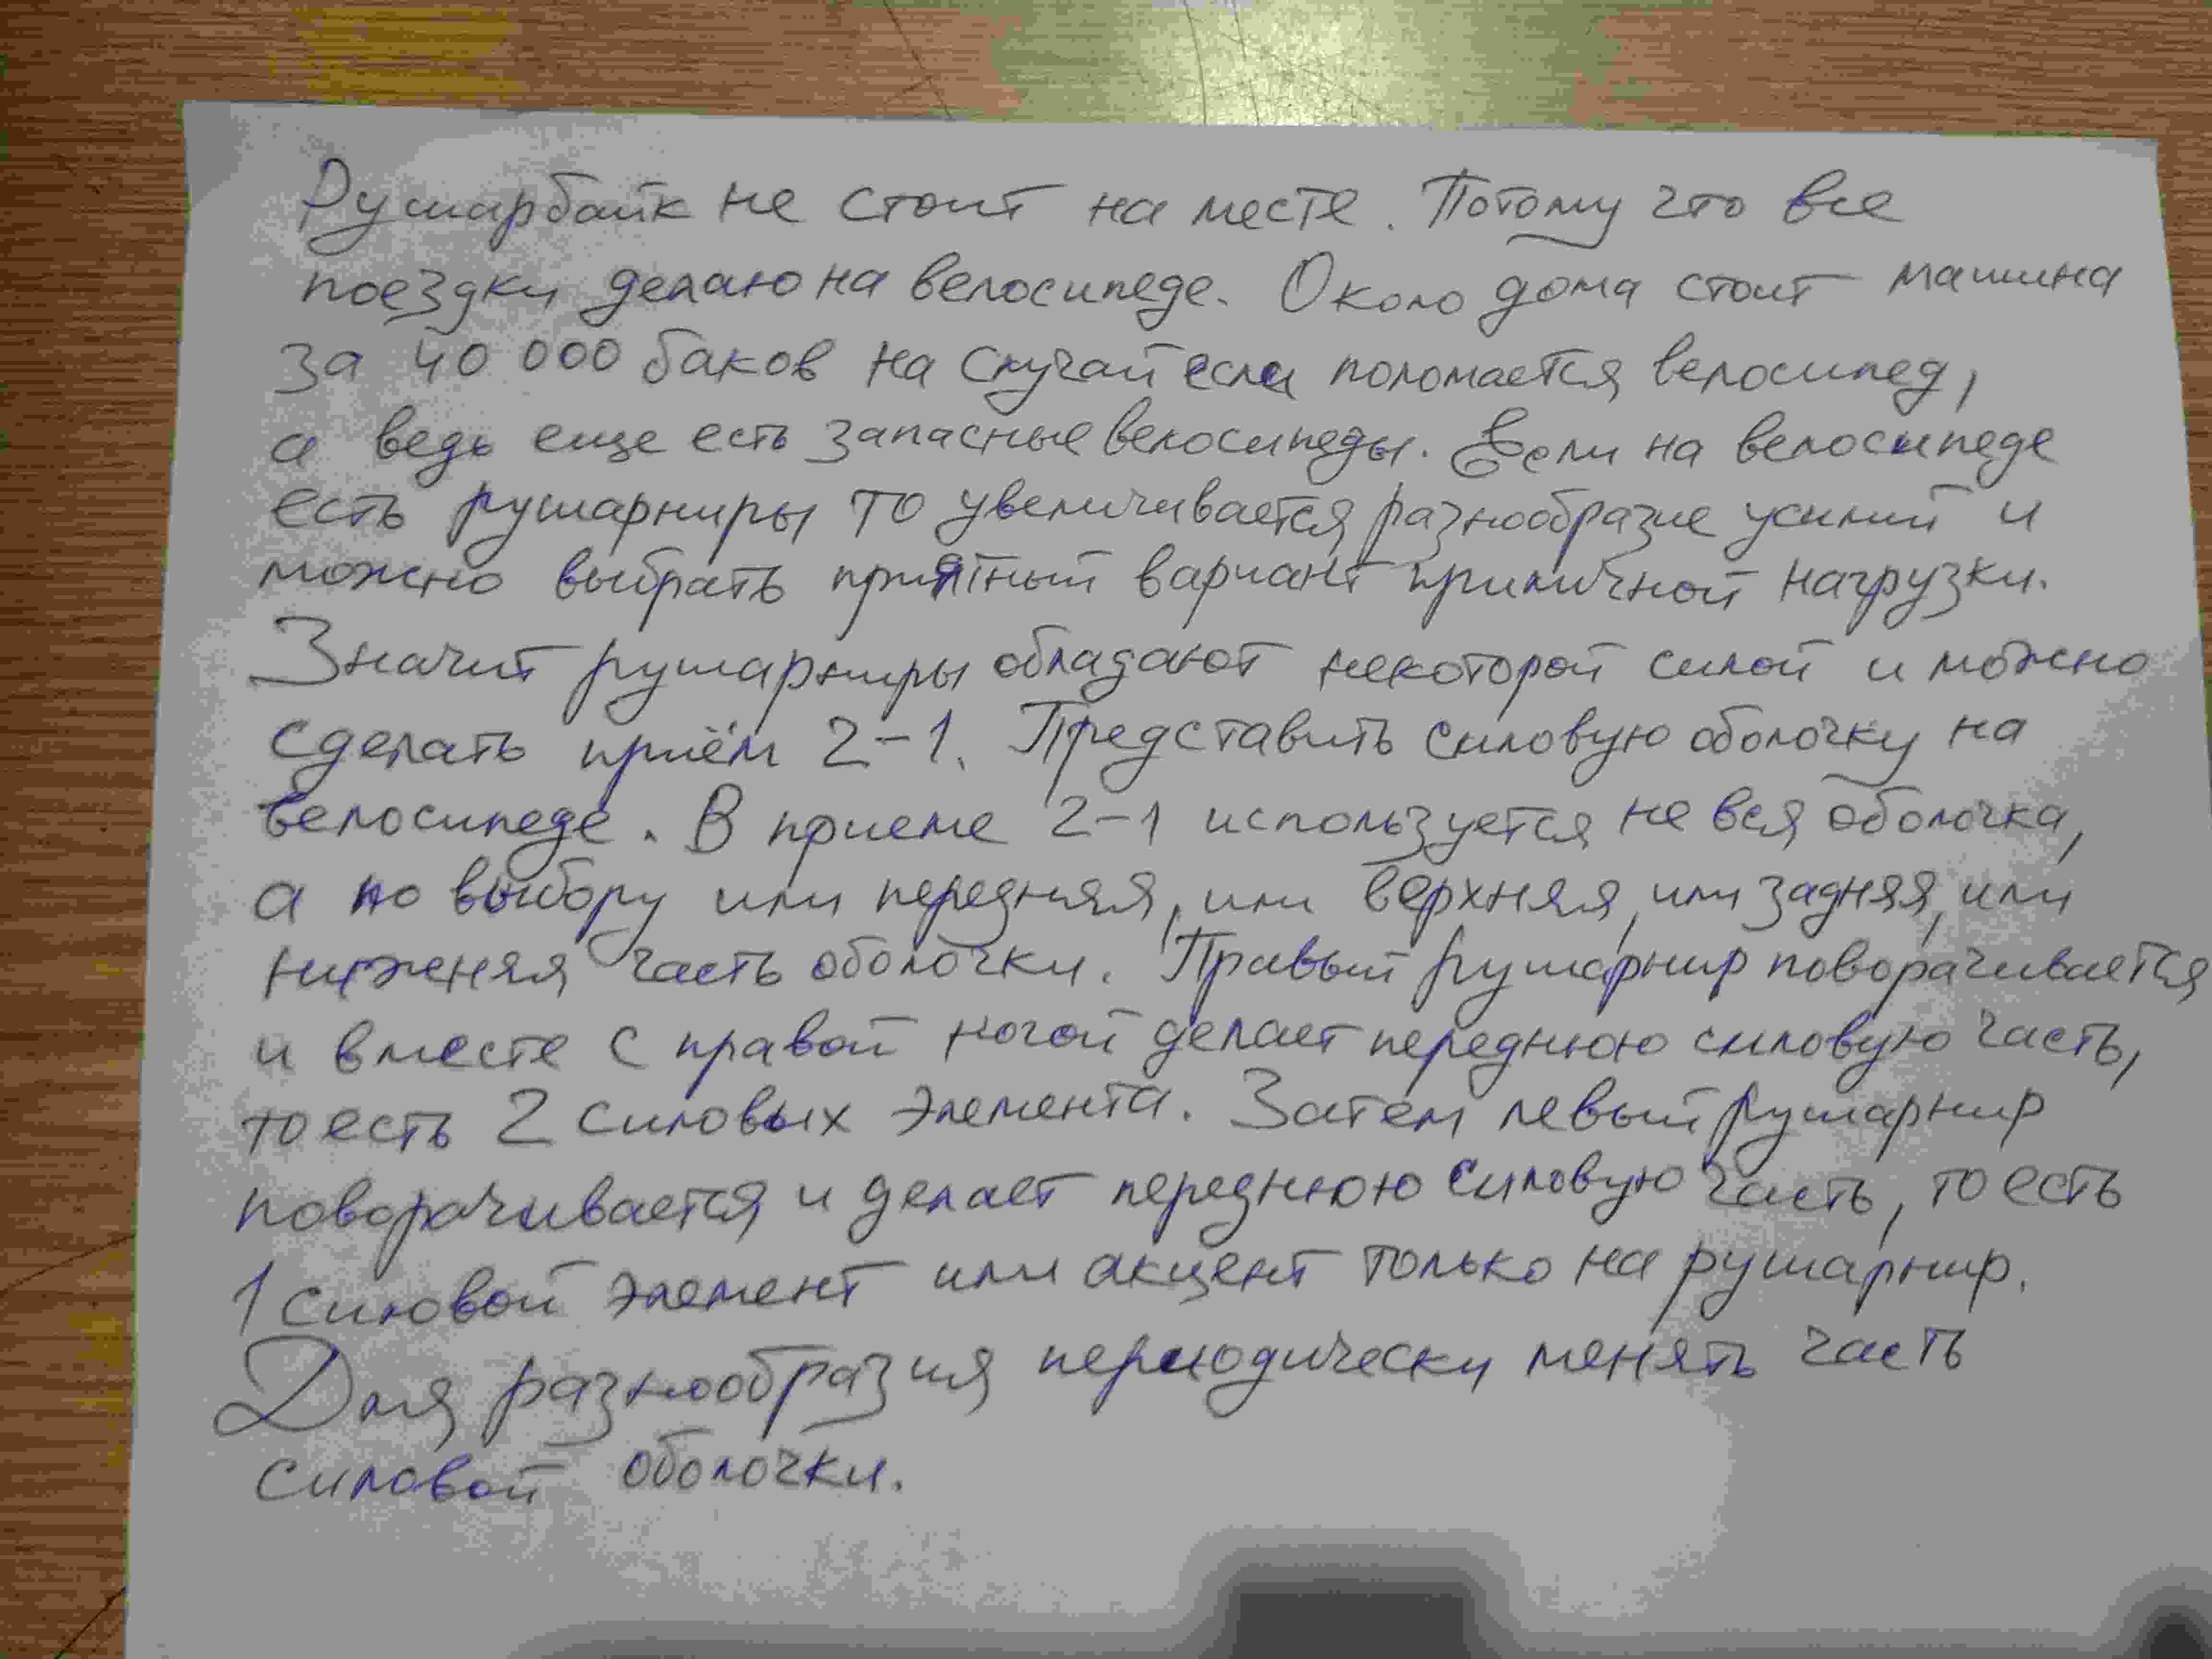 Рушарбайк не стоит на месте. Потому что все
поездки делаю на велосипеде. Около дома стоит машина
за 40 000 баков на случай если поломается велосипед,
а ведь еще есть запасные велосипеды. Если на велосипеде
есть рушарниры то увеличивается разнообразие усилий и
можно выбрать приятный вариант приличной нагрузки.
Значит рушарниры обладают некоторой силой и можно
сделать приём 2-1. Представить силовую оболочку на
велосипеде. В приеме 2-1 используется не вся оболочка,
а по выбору или передняя, или верхняя, или задняя, или
нижняя часть оболочки. Правый рушарнир поворачивается
и вместе с правой ногой делает переднюю силовую часть,
то есть 2 силовых элемента. Затем левый рушарнир
поворачивается и делает переднюю силовую часть, то есть
1 силовой элемент или акцент только на рушарнир.
Для разнообразия периодически менять часть
силовой оболочки.